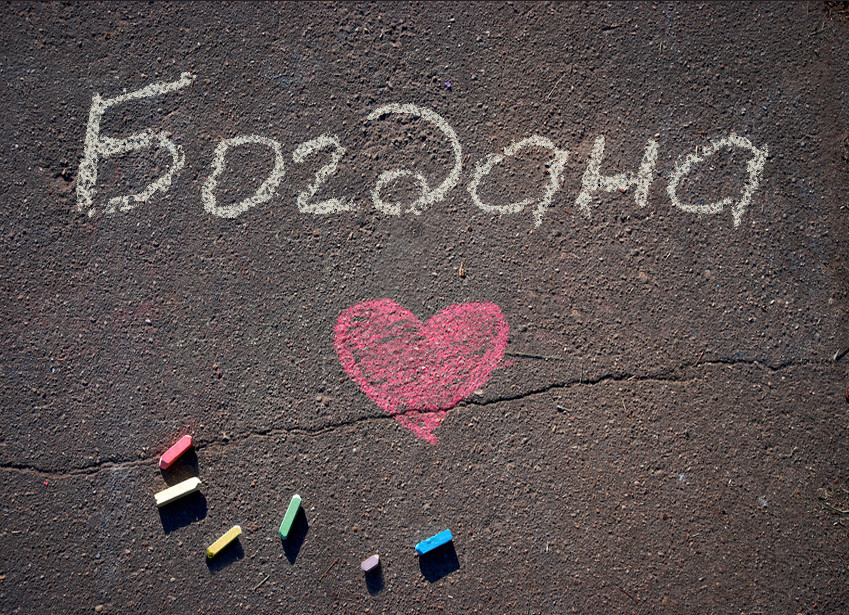 Богдана